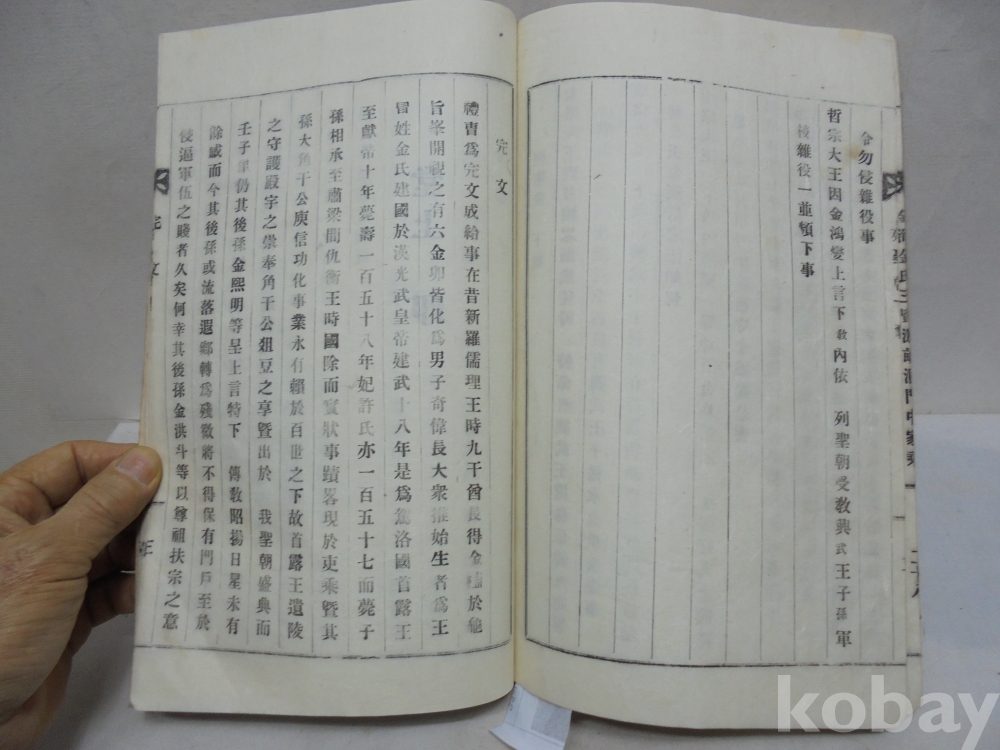 令勿侵雜役事
哲宗大王因金鴻燮上言下教內依 列聖朝受教興武王子孫軍
役雜役一並頉下事
完文
禮曹爲完文成給事在昔新羅儒理王時九干酋長得金樻於龜
旨峯開視之有六金卵皆化爲男子奇偉長大衆推始生者爲王
冒姓金氏建國於漢光武皇帝建武十八年是爲駕洛國首露王
至獻帝十年薨壽一百五十八年妃許氏亦一百五十七而薨子
孫相承至蕭梁間仇衡王時國除而實狀事蹟畧現於吏乘暨其
孫大角干公庾信功化事業永有賴於百世之下故首露王遺陵
之守護殿宇之崇奉角干公俎豆之享曁出於 我聖朝盛典而
壬子 仍其後孫金熙明等呈上言特下 傳敎昭揚日星未有
餘感而今其後孫或流落遐鄕轉爲殘 將不得保有門戶至於
侵逼軍伍之 者久矣何幸其後孫金洪斗等以尊祖扶宗之意
完文
kobay